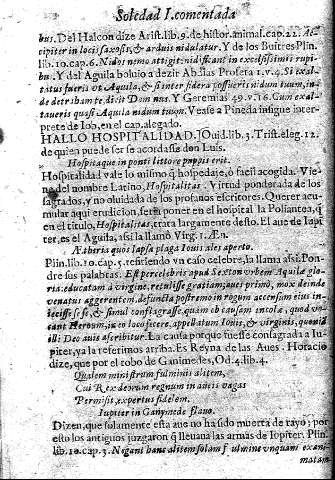 Soledad I. comentada
bus. Del Halcon dize Arist. lib. 9. de histor. animal. cap. 22. Ac-
cipiter in locis saxosis, & arduis nidulatur. Y de los Buitres Plin.
lib. 10. cap. 6. Nidos nemo attigit: nidificant in excelsissimis rupi-
bus. Y del Aguila boluio a dezir Abdias Profeta 1. v. 4. Si exal-
tatus fueris vt Aquila, & si inter sidera posueris nidum tuum, in-
de detraham te, dicit Dominus. Y Geremias 49. v. 16. Cum exal-
taueris quasi Aquila nidum tuum. Vease a Pineda insigne inter-
prete de Iob, en el cap. alegado.
HALLO HOSPITALIDAD.] Ouid. lib. 3. Trist. eleg. 12.
de quien puede ser se acordasse don Luis.
Hospitaque in ponti littore puppis erit.
Hospitalidad vale lo mismo q̃ hospedaje, ò facil acogida. Vie-
ne del nombre Latino, Hospitalitas. Virtud ponderada de los
sagrados, y no oluidada de los profanos escritores. Querer acu-
mular aqui erudicion, seria poner en el hospital la Poliantea, q̃
en el titulo, Hospitalitas, trata largamente desto. El aue de Iupi
ter, es el Aguila, assi la llamò Virg. 1. Æn.
Ætheria quos lapsa plaga Iouis ales aperto.
Plin. lib. 10. cap. 5. refiriendo vn caso celebre, la llama assi. Pon-
dre sus palabras. Est percelebris apud Seston vrbem Aquilæ glo-
ria. educatam à virgine, retulisse gratiam, aues primò, mox deinde
venatus aggerentem, defuncta postremo in rogum accensum eius in-
iecisse se se, & simul conflagrasse. quam ob causam incolæ, quod vo-
cant Heroum, in eo loco fecere, appellatum Iouis, & virginis, quoniã
illi Deo auis ascribitur. La causa porque fuesse consagrada a Iu-
piter, ya la referimos arriba. Es Reyna de las Aues. Horacio
dize, que por el robo de Ganimedes, Od. 4. lib. 4.
Qualem ministrum fulminis alitem,
Cui Rex deorum regnum in aueis vagas
Permisit, expertus fidelem,
Iupiter in Ganymede flauo.
Dizen, que solamente esta aue no ha sido muerta de rayo; por
esto los antiguos juzgaron q̃ lleuaua las armas de Iupiter. Plin.
lib. 10. cap. 3. Negant hanc alitem solam fulmine vnquam exani-
matam